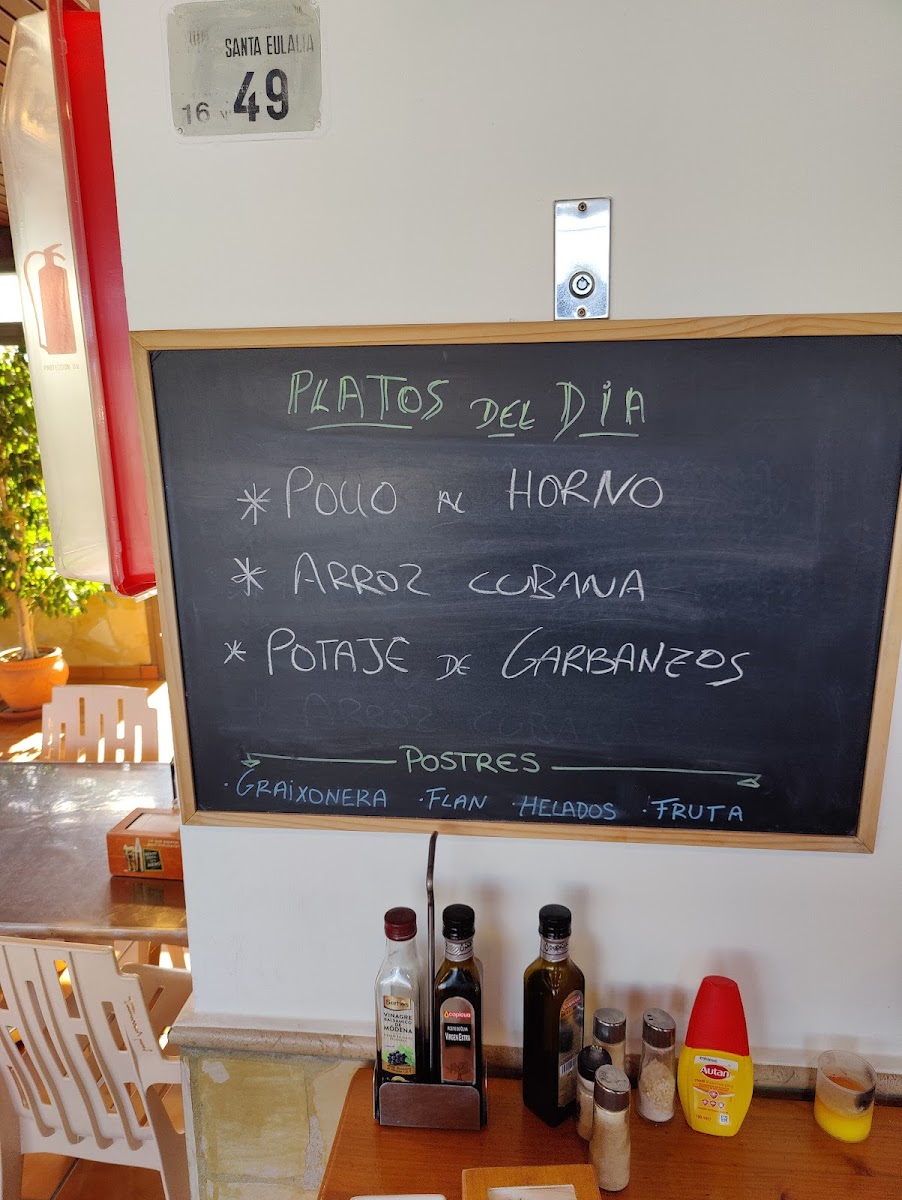 SANTA EULALIA
16 Nº 49
PLATOS DEL DIA
* POLLO AL HORNO
* ARROZ CUBANA
* POTAJE DE GARBANZOS
ARROZ CUBANA
POSTRES
· GRAIXONERA · FLAN · HELADOS · FRUTA
VINAGRE
BALSÁMICO
DE
MÓDENA
VIRGEN EXTRA
Autan